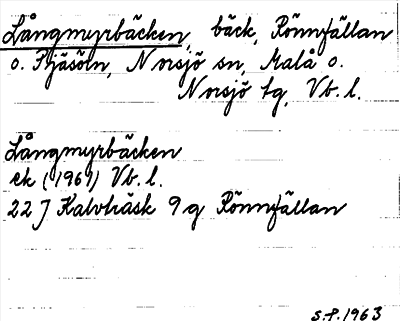 Långmyrbäcken, bäck, Rönnfällan
o. Fljäsöln, Norsjö sn, Malå o.
Norsjö tg, Vb. l.
Långmyrbäcken
ek (1961) Vb. l.
22 J Kalvträsk 9 g Rönnfällan
S.P. 1963